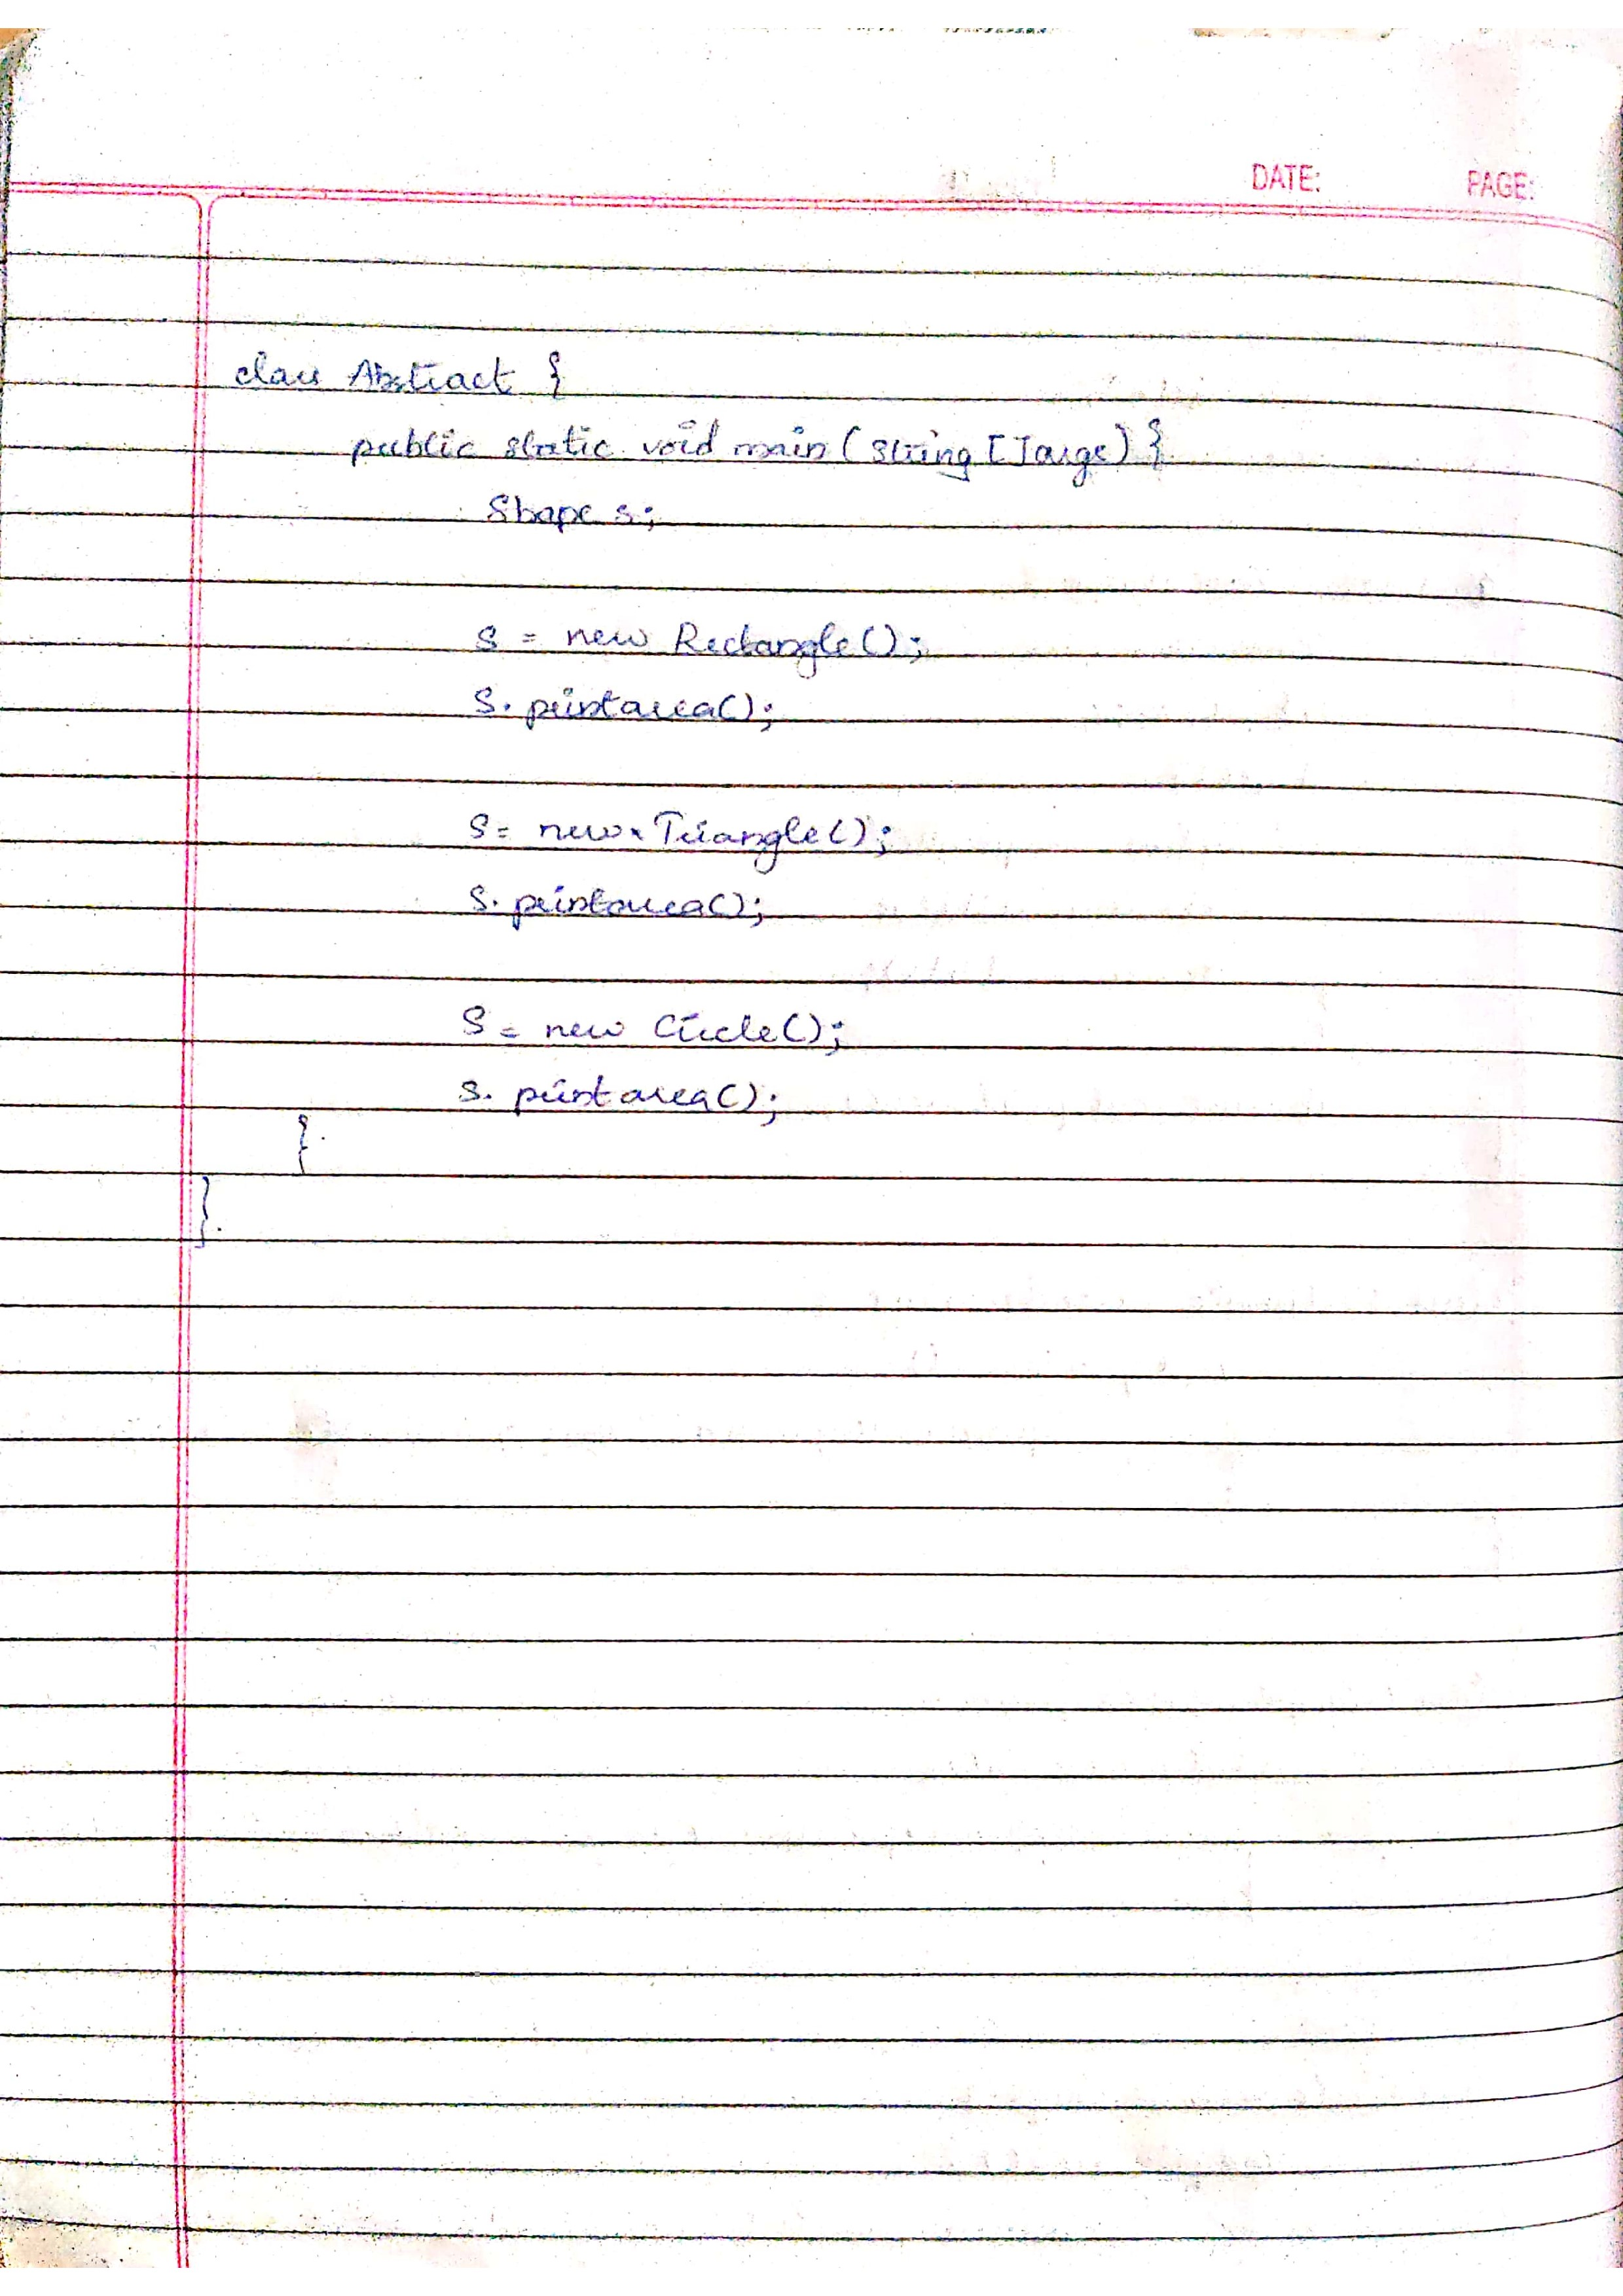 DATE: PAGE:
class Abstract {
public static void main (String [] args) {
Shape s;
s = new Rectangle();
s. printarea();
s = new Triangle();
s. printarea();
s = new Circle();
s. printarea();
}
}